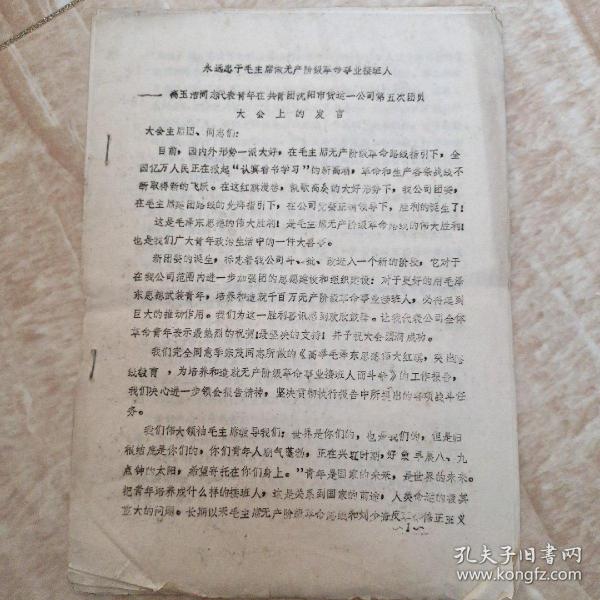 永远忠于毛主席做无产阶级革命事业接班人
——高玉清同志代表青年在共青团沈阳市货运一公司第五次团员
大会上的发言
大会主席团、同志们：
目前，国内外形势一派大好，在毛主席无产阶级革命路线指引下，全
国亿万人民正在掀起“认真看书学习”的新高潮，革命和生产各条战线不
断取得新的飞跃。在这红旗漫卷，凯歌高奏的大好形势下，我公司团委，
在毛主席建团路线的光辉指引下，在公司党委正确领导下，胜利的诞生了！
这是毛泽东思想的伟大胜利！是毛主席无产阶级革命路线的伟大胜利！
也是我们广大青年政治生活中的一件大喜事。
新团委的诞生，标志着我公司斗、批、改进入一个新的阶段，它对于
在我公司范围内进一步加强团的思想建设和组织建设；对于更好的用毛泽
东思想武装青年，培养和造就千百万无产阶级革命事业接班人，必将起到
巨大的推动作用。我们为这一胜利喜讯感到欢欣鼓舞。让我代表公司全体
革命青年表示最热烈的祝贺！最坚决的支持！并予祝大会圆满成功。
我们完全同意李宗茂同志所做的《高举毛泽东思想伟大红旗，突出路
线教育，为培养和造就无产阶级革命事业接班人而斗争》的工作报告，
我们决心进一步领会报告精神，坚决贯彻执行报告中所提出的各项战斗任
务。
我们伟大领袖毛主席教导我们：世界是你们的，也是我们的，但是归
根结底是你们的，你们青年人朝气蓬勃，正在兴旺时期，好象早晨八、九
点钟的太阳，希望寄托在你们身上。”青年是国家的未来，是世界的未来。
把青年培养成什么样的接班人，这是关系到国家的前途，人类命运的极其
重大的问题。长期以来毛主席无产阶级革命路线和刘少奇反革命修正主义
～1～
孔夫子旧书网
www.kongfz.com